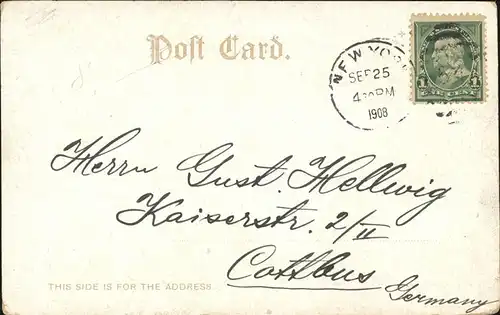 Post Card.
NEW YORK
SEP 25
4 30 PM
1908
1 ONE CENT 1
Herrn Gust. Hellwig
Kaiserstr. 2/II
Cottbus
Germany
THIS SIDE IS FOR THE ADDRESS